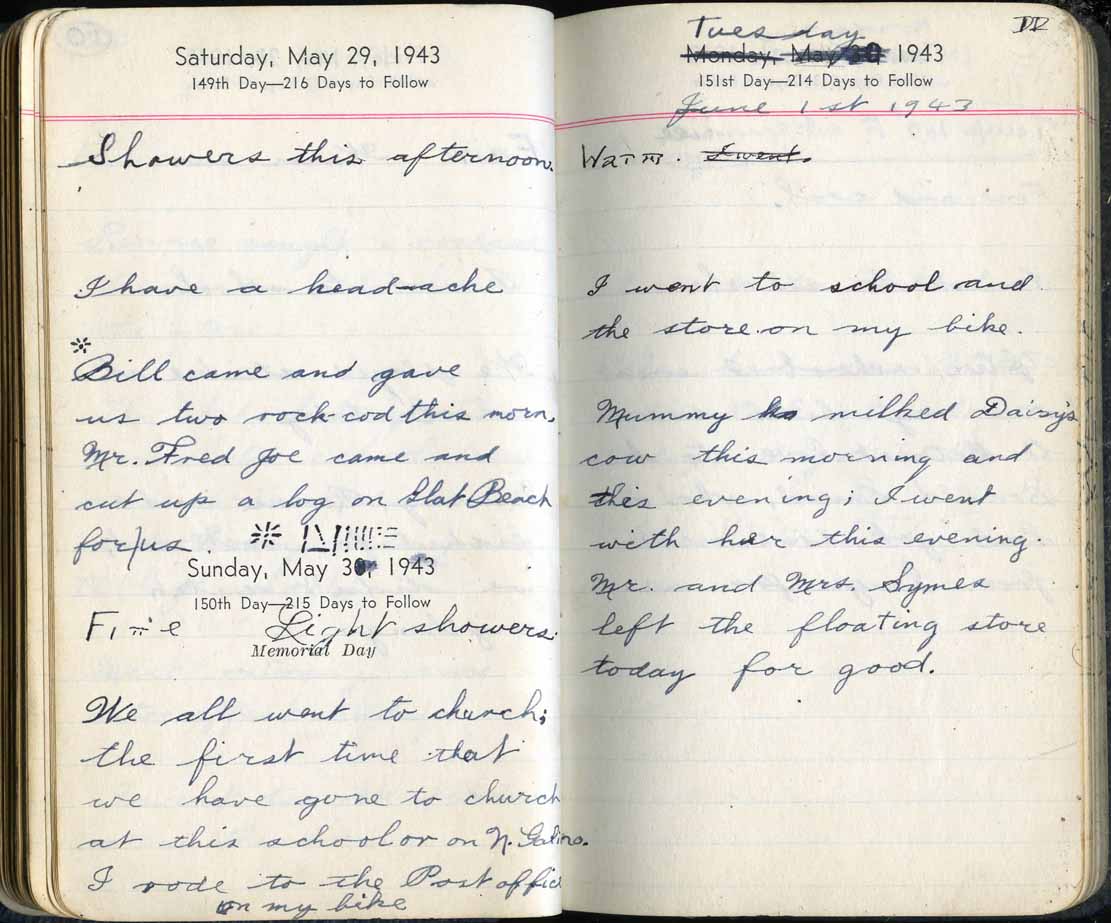 Saturday, May 29, 1943
149th Day—216 Days to Follow
Showers this afternoon.
I have a head-ache
Bill came and gave
us two rock-cod this morn.
Mr. Fred Joe came and
cut up a log on Slat Beach
for us
Sunday, May 30, 1943
150th Day—215 Days to Follow
Fine Light showers.
Memorial Day
We all went to church;
the first time that
we have gone to church
at this school or on N. Galino.
I rode to the Post offic
on my bike
IV
Tuesday
Monday, May 30 1943
151st Day—214 Days to Follow
June 1st 1943
Warm. I went.
I went to school and
the store on my bike.
Mummy milked Daisy's
cow this morning and
this evening; I went
with her this evening.
Mr. and Mrs. Symes
left the floating store
today for good.